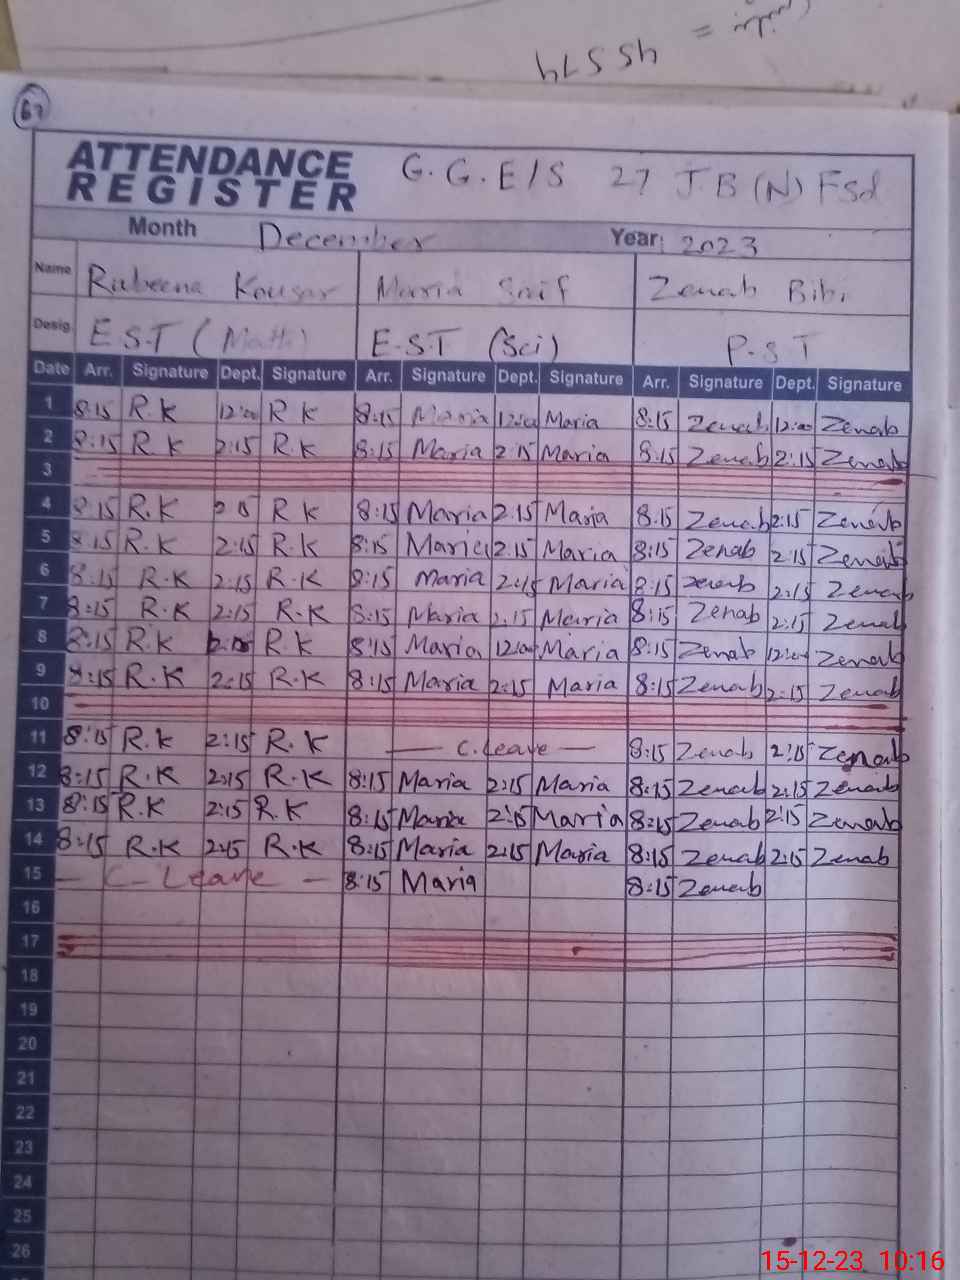 = 45574
67
ATTENDANCE REGISTER G.G.E/S 27 J.B (N) Fsd
Month December Year: 2023
Name Rubeena Kousar Maria Saif Zenab Bibi
Desig. E.S.T (Math) E.S.T (Sci) P.S.T
Date Arr. Signature Dept. Signature Arr. Signature Dept. Signature Arr. Signature Dept. Signature
1 8:15 R.K 12:00 R K 8:15 Maria 12:00 Maria 8:15 Zenab 12:00 Zenab
2 8:15 R.K 2:15 R.K 8:15 Maria 2:15 Maria 8:15 Zenab 2:15 Zenab
3
4 8:15 R.K 2:15 R K 8:15 Maria 2:15 Maria 8:15 Zenab 2:15 Zenab
5 8:15 R.K 2:15 R.K 8:15 Maria 2:15 Maria 8:15 Zenab 2:15 Zenab
6 8:15 R.K 2:15 R.K 8:15 Maria 2:15 Maria 8:15 Zenab 2:15 Zenab
7 8:15 R.K 2:15 R.K 8:15 Maria 2:15 Maria 8:15 Zenab 2:15 Zenab
8 8:15 R.K R.K 8:15 Maria 12:00 Maria 8:15 Zenab 12:00 Zenab
9 8:15 R.K 2:15 R.K 8:15 Maria 2:15 Maria 8:15 Zenab 2:15 Zenab
10
11 8:15 R.K 2:15 R.K — C.Leave — 8:15 Zenab 2:15 Zenab
12 8:15 R.K 2:15 R.K 8:15 Maria 2:15 Maria 8:15 Zenab 2:15 Zenab
13 8:15 R.K 2:15 R.K 8:15 Maria 2:15 Maria 8:15 Zenab 2:15 Zenab
14 8:15 R.K 2:15 R.K 8:15 Maria 2:15 Maria 8:15 Zenab 2:15 Zenab
15 — C-Leave — 8:15 Maria 8:15 Zenab
16
17
18
19
20
21
22
23
24
25
26
15-12-23 10:16